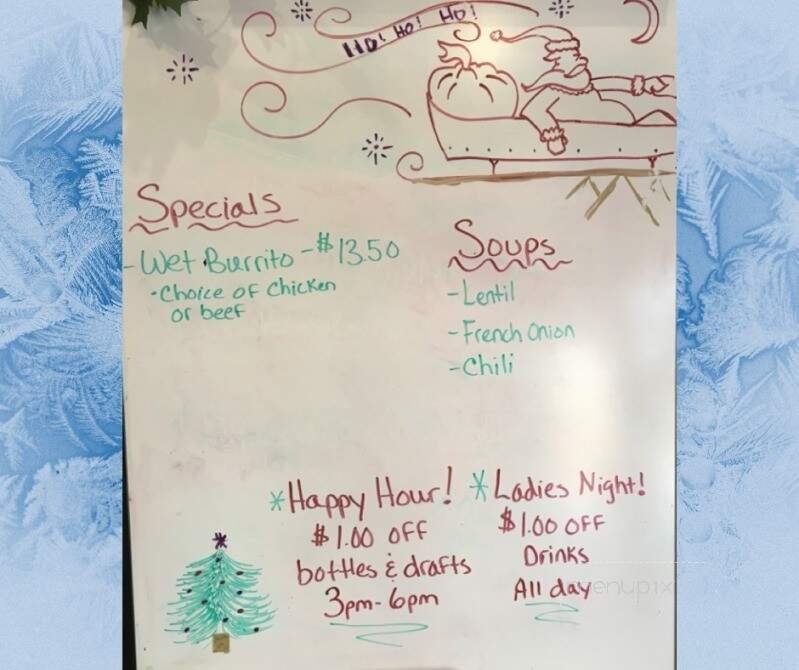 HO! HO! HO!
Specials
- Wet Burrito - $13.50
• Choice of Chicken
or beef
Soups
- Lentil
- French Onion
- Chili
* Happy Hour!
$1.00 OFF
bottles & drafts
3pm - 6pm
* Ladies Night!
$1.00 OFF
Drinks
All day
menupix